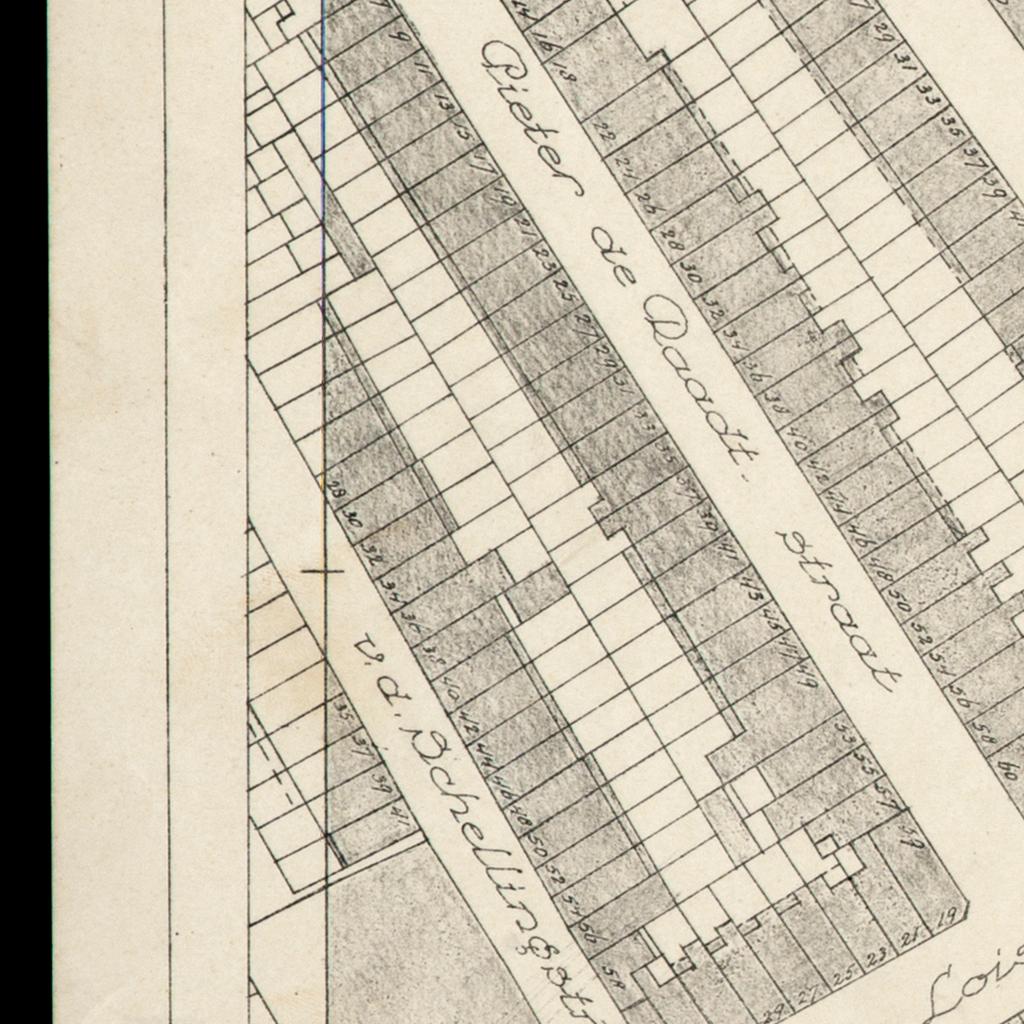 Pieter de Raadt. straat
v.d. Schellingstr
Lois
7
9
11
13
15
17
19
21
23
25
27
29
31
33
35
37
39
41
43
45
47
49
53
55
57
59
14
16
18
22
24
26
28
30
32
34
36
38
40
42
44
46
48
50
52
54
56
58
60
29
31
33
35
37
39
28
30
32
34
36
38
40
42
44
46
48
50
52
54
56
58
35
37
39
41
19
21
23
25
27
29